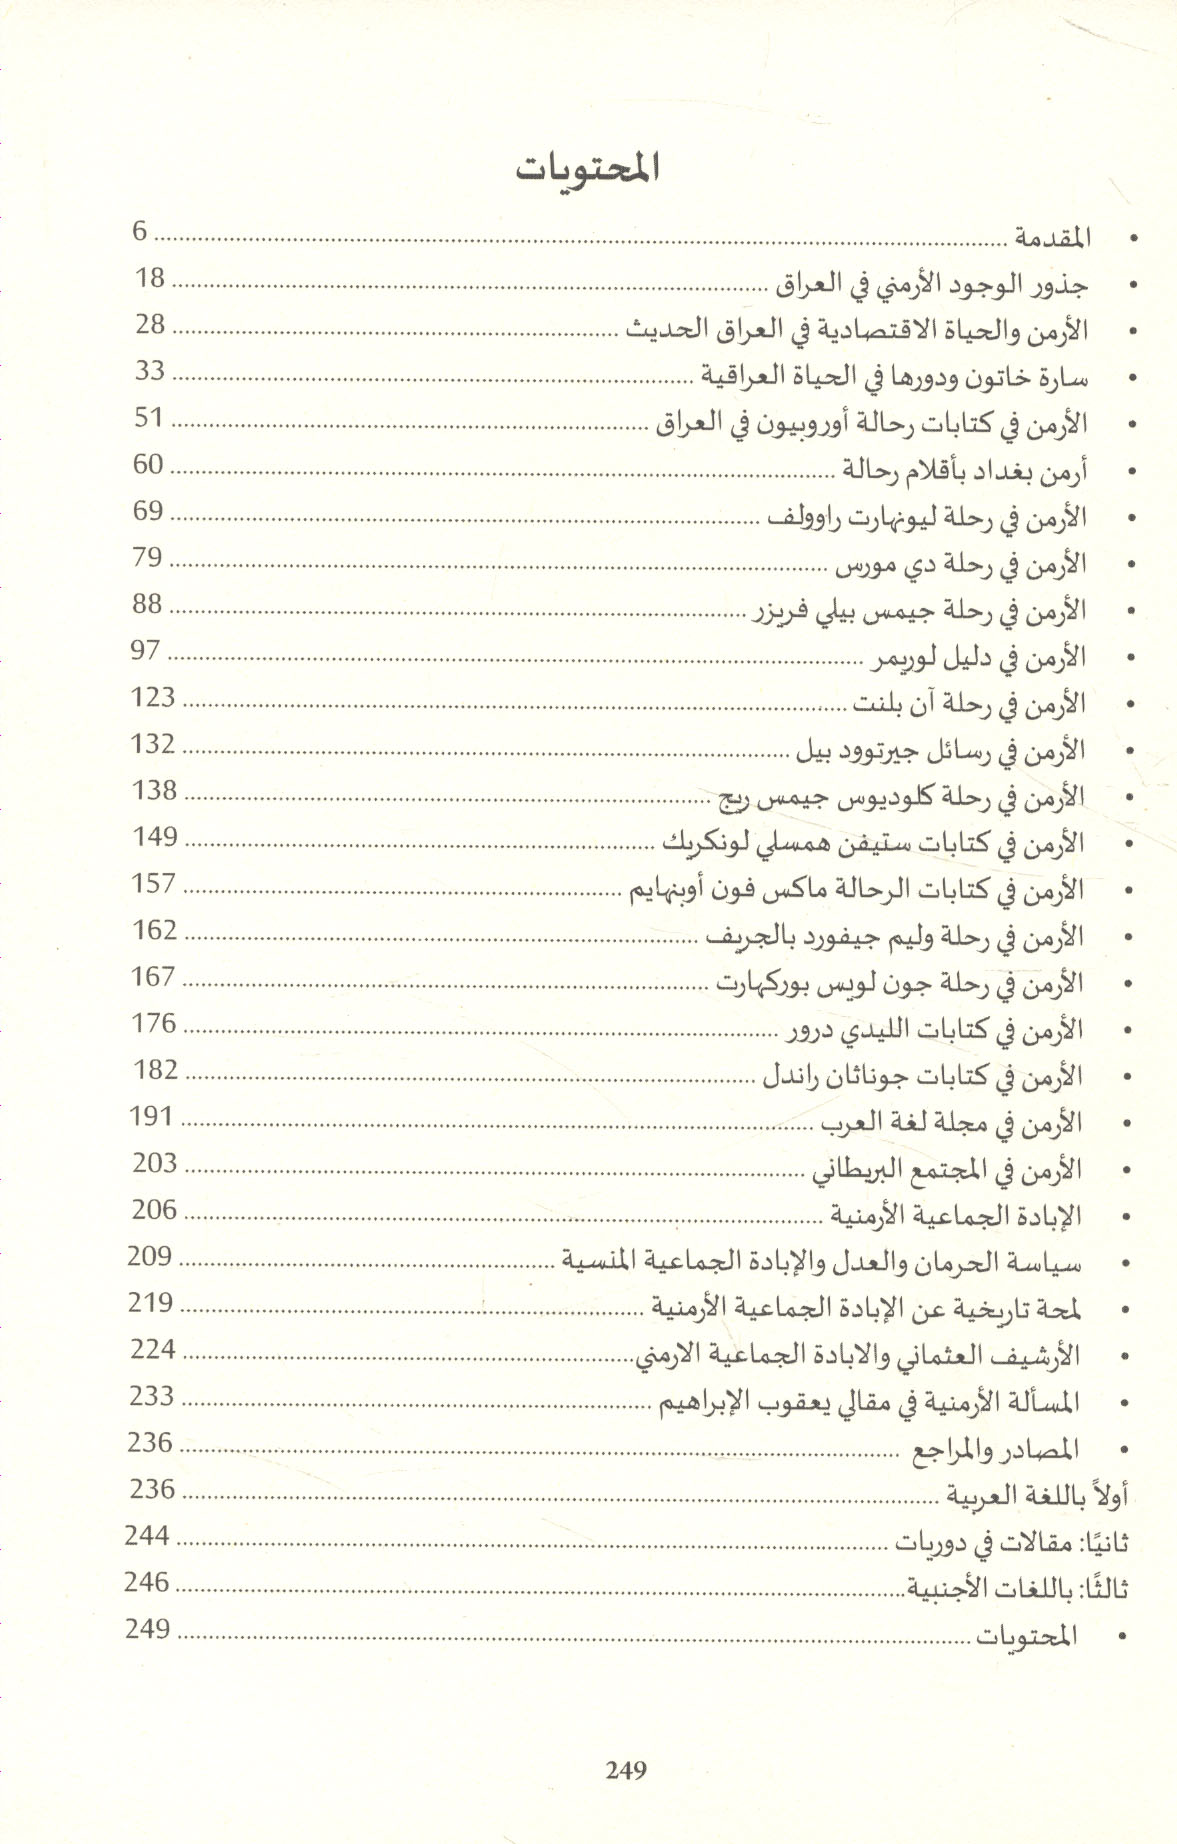 المحتويات
• المقدمة ........ 6
• جذور الوجود الأرمني في العراق ........ 18
• الأرمن والحياة الاقتصادية في العراق الحديث ........ 28
• سارة خاتون ودورها في الحياة العراقية ........ 33
• الأرمن في كتابات رحالة أوروبيون في العراق ........ 51
• أرمن بغداد بأقلام رحالة ........ 60
• الأرمن في رحلة ليونهارت راوولف ........ 69
• الأرمن في رحلة دي مورس ........ 79
• الأرمن في رحلة جيمس بيلي فريزر ........ 88
• الأرمن في دليل لوريمر ........ 97
• الأرمن في رحلة آن بلنت ........ 123
• الأرمن في رسائل جيرتوود بيل ........ 132
• الأرمن في رحلة كلوديوس جيمس ريج ........ 138
• الأرمن في كتابات ستيفن همسلي لونكريك ........ 149
• الأرمن في كتابات الرحالة ماكس فون أوبنهايم ........ 157
• الأرمن في رحلة وليم جيفورد بالجريف ........ 162
• الأرمن في رحلة جون لويس بوركهارت ........ 167
• الأرمن في كتابات الليدي درور ........ 176
• الأرمن في كتابات جوناثان راندل ........ 182
• الأرمن في مجلة لغة العرب ........ 191
• الأرمن في المجتمع البريطاني ........ 203
• الإبادة الجماعية الأرمنية ........ 206
• سياسة الحرمان والعدل والإبادة الجماعية المنسية ........ 209
• لمحة تاريخية عن الإبادة الجماعية الأرمنية ........ 219
• الأرشيف العثماني والابادة الجماعية الارمني ........ 224
• المسألة الأرمنية في مقالي يعقوب الإبراهيم ........ 233
• المصادر والمراجع ........ 236
أولاً باللغة العربية ........ 236
ثانيًا: مقالات في دوريات ........ 244
ثالثًا: باللغات الأجنبية ........ 246
• المحتويات ........ 249
249